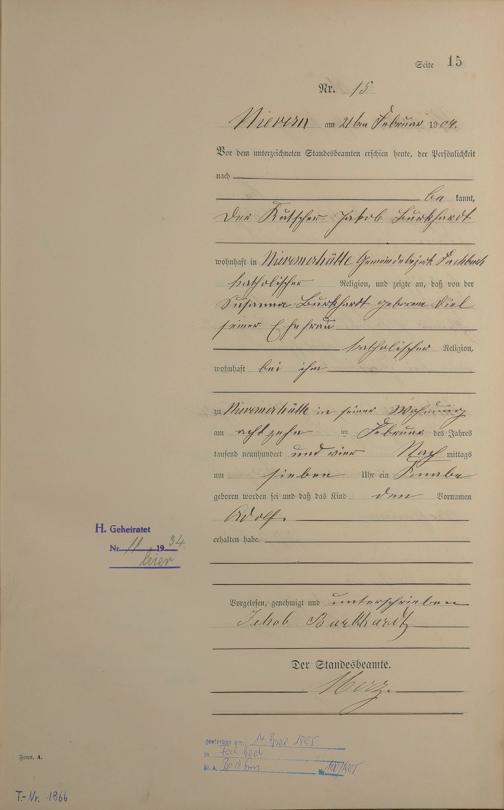 Seite 15
Nr. 15
Nievern am 21ten Februar 1904.
Vor dem unterzeichneten Standesbeamten erschien heute, der Persönlichkeit
nach
be kannt,
der Kutscher Jakob Burkhardt
wohnhaft in Nievernerhütte Gemeindebezirk Fachbach
katholischer Religion, und zeigte an, daß von der
Susanna Burkhardt geborene Diel
seiner Ehefrau
katholischer Religion,
wohnhaft bei ihm
zu Nievernerhütte in seiner Wohnung
am achtzehn ten Februar des Jahres
tausend neunhundert und vier Nach mittags
um sieben Uhr ein Knabe
geboren worden sei und daß das Kind den Vornamen
Adolf.
erhalten habe.
H. Geheiratet
Nr. 11 1934
hier
Vorgelesen, genehmigt und unterschrieben
Jakob Burkhardt
Der Standesbeamte.
gestorben am 1985
in Fachbach
St. A.
Nr.
Form. A.
T.-Nr. 1866